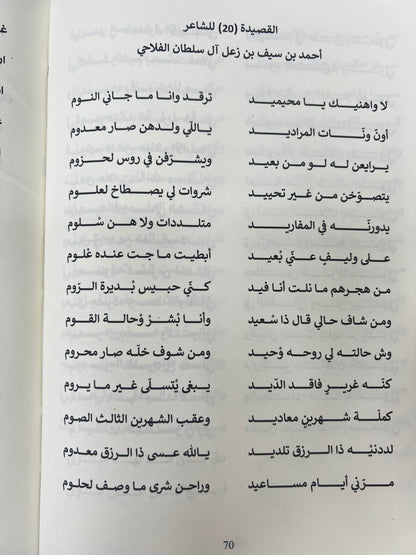 القصيدة (20) للشاعر
أحمد بن سيف بن زعل آل سلطان الفلاحي
لا واهنيك يا محيميد ترقد وانا ما جاني النوم
أون ونّات المراديد ياللّي ولدهن صار معدوم
يرايعن له لو من بعيد ويشرّفن في روس لحزوم
يتصوّخن من غير تحييد شروات لي يصطاخ لعلوم
يدورنّه في المفاريد متلددات ولا هن سْلوم
على وليفٍ عنّي بْعيد أبطيت ما جت عنده عْلوم
من هجرهم ما نلت أنا فيد كنّي حبيس بْديرة الرّوم
ومن شاف حالي قال ذا سْعيد وأنا بْشرّ وْحالة القوم
وش حالته لي روحه وْحيد ومن شوف خلّه صار محروم
كنّه غريرٍ فاقد الدّيد يبغى يْتسلّى غير ما يروم
كملّة شهرينٍ معاديد وعقب الشهرين الثالث الصوم
لددنيْه ذا الرزق تلديد يالله عسى ذا الرزق معدوم
مرّني أيام مساعيد وراحن شرى ما وصف لحلوم
70